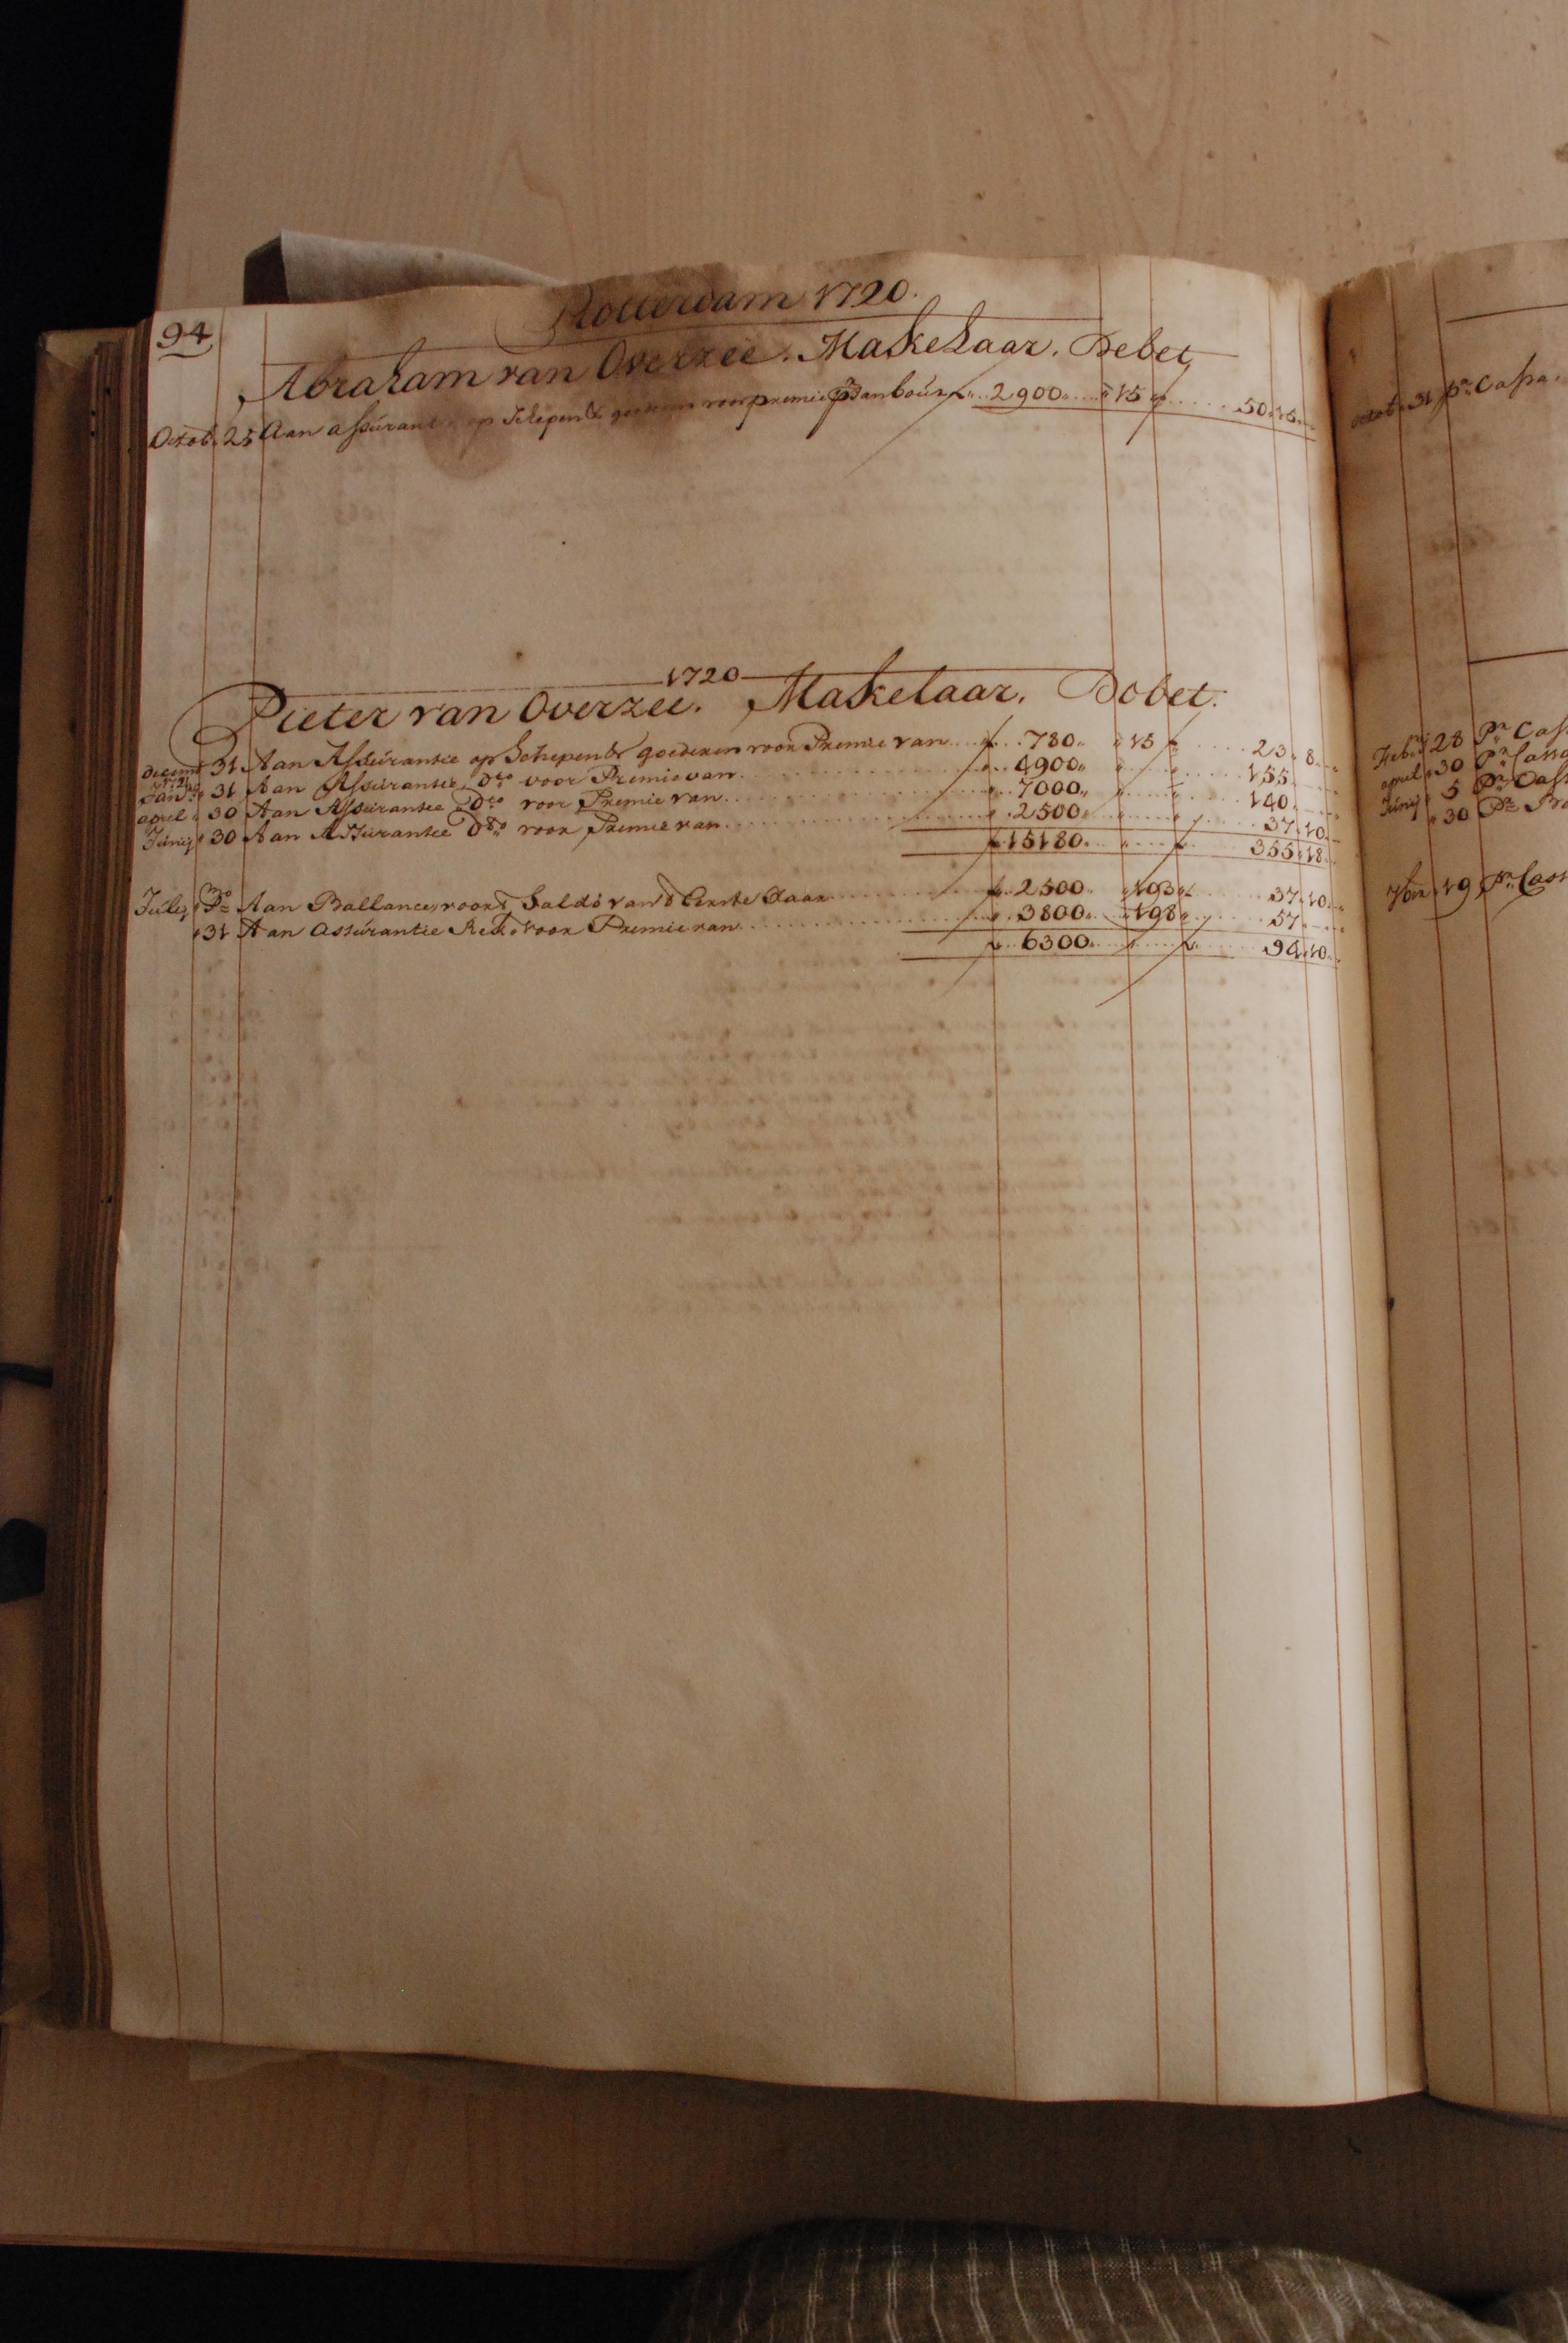 Rotterdam 1720.
94
Abraham van Overzee. Makelaar. Debet
Octob. 25 Aan assurant op Schepen & goederen voor premie f 2900 " 15 f 50.15.
1720
Pieter van Overzee. Makelaar. Debet.
decemb 31 Aan Assurantie op Schepen & goederen voor Premie van f 780 " 15 f 23.8.
1721
Jan. 31 Aan Assurantie, Dto. voor Premie van " 4900 " " 155.
april 30 Aan Assurantie Dto. voor Premie van " 7000 " " 140.
Junij 30 Aan Assurantie Dto. voor Premie van " 2500 " " 37.10.
f 15180 f 355.18.
Julij Po. Aan Ballance, voor 't Saldo van d'Eerste Jaar f 2500 " 193 f 37.10.
" 31 Aan Assurantie Rek. voor Premie van " 3800 " 198 " 57.
f 6300 f 94.10.
octob 31 Pr. Cassa.
Feb. 28 Pr Cas
april 30 Pr Cassa
Junij 5 Pr. Cass
" 30 Pr
19 Pr. Cas